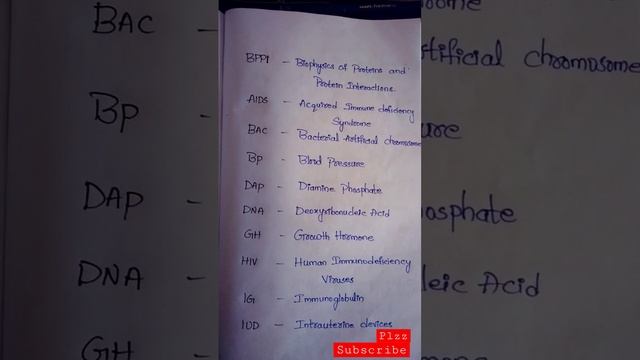 BPPI - Biophysics of Proteins and
Protein Interactions.
AIDS - Acquired Immune deficiency
Syndrome
BAC - Bacterial Artificial chromosome
BP - Blood Pressure
DAP - Diamine Phosphate
DNA - Deoxyribonucleic Acid
GH - Growth Hormone
HIV - Human Immunodeficiency
Viruses
IG - Immunoglobulin
IUD - Intrauterine devices
Plzz
Subscribe
BAC -
BP -
DAP -
DNA -
GH -
artificial chromosome
ure
osphate
leic Acid